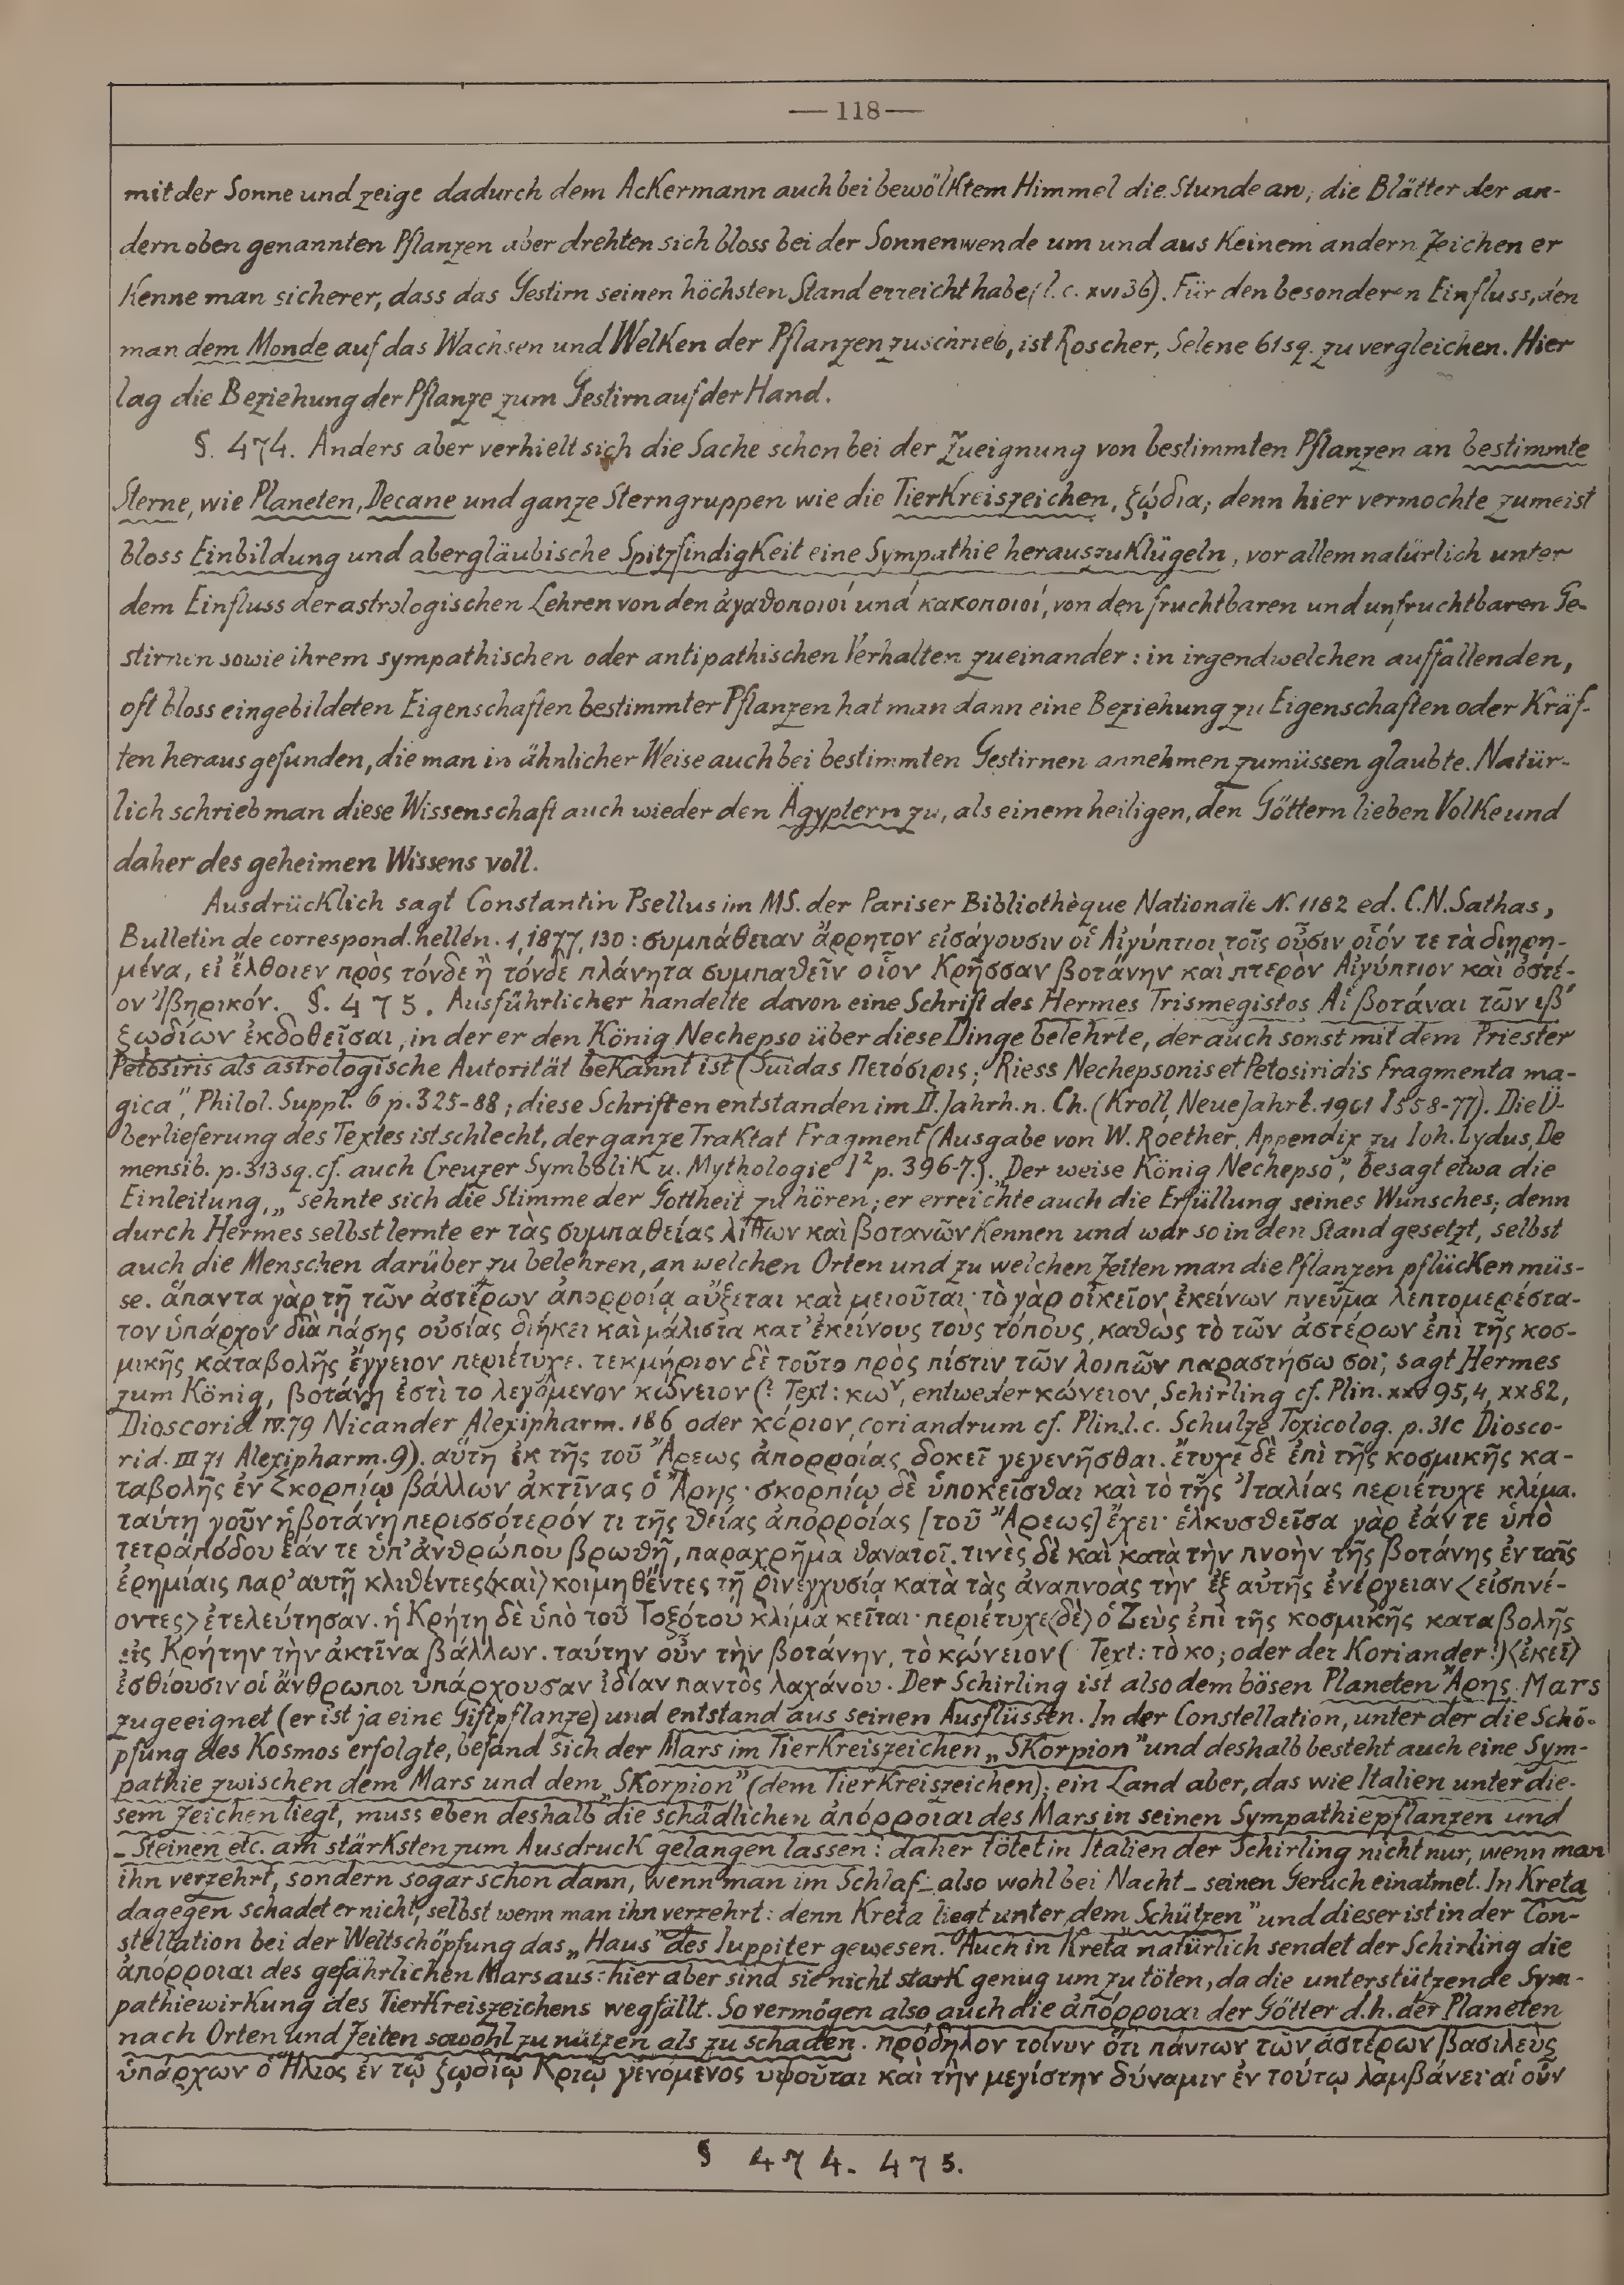 — 118 —
mit der Sonne und zeige dadurch dem Ackermann auch bei bewölktem Himmel die Stunde an; die Blätter der an-
dern oben genannten Pflanzen aber drehten sich bloss bei der Sonnenwende um und aus keinem andern Zeichen er
kenne man sicherer, dass das Gestirn seinen höchsten Stand erreicht habe (l. c. XVI 36). Für den besonderen Einfluss, den
man dem Monde auf das Wachsen und Welken der Pflanzen zuschrieb, ist Roscher, Selene 61 sq. zu vergleichen. Hier
lag die Beziehung der Pflanze zum Gestirn auf der Hand.
§. 474. Anders aber verhielt sich die Sache schon bei der Zueignung von bestimmten Pflanzen an bestimmte
Sterne, wie Planeten, Decane und ganze Sterngruppen wie die Tierkreiszeichen, ζῴδια; denn hier vermochte zumeist
bloss Einbildung und abergläubische Spitzfindigkeit eine Sympathie herauszuklügeln, vor allem natürlich unter
dem Einfluss der astrologischen Lehren von den ἀγαθοποιοί und κακοποιοί, von den fruchtbaren und unfruchtbaren Ge-
stirnen sowie ihrem sympathischen oder antipathischen Verhalten zueinander: in irgendwelchen auffallenden,
oft bloss eingebildeten Eigenschaften bestimmter Pflanzen hat man dann eine Beziehung zu Eigenschaften oder Kräf-
ten herausgefunden, die man in ähnlicher Weise auch bei bestimmten Gestirnen annehmen zu müssen glaubte. Natür-
lich schrieb man diese Wissenschaft auch wieder den Ägyptern zu, als einem heiligen, den Göttern lieben Volke und
daher des geheimen Wissens voll.
Ausdrücklich sagt Constantin Psellus im MS. der Pariser Bibliothèque Nationale N. 1182 ed. C.N. Sathas,
Bulletin de correspond. hellén. 1, 1877, 130: συμπάθειαν ἄρρητον εἰσάγουσιν οἱ Αἰγύπτιοι τοῖς οὖσιν οἷόν τε τὰ διῃρη-
μένα, εἰ ἔλθοιεν πρὸς τόνδε ἢ τόνδε πλάνητα συμπαθεῖν οἷον Κρῆσσαν βοτάνην καὶ πτερὸν Αἰγύπτιον καὶ ὀστέ-
ον Ἰβηρικόν. §. 475. Ausführlicher handelte davon eine Schrift des Hermes Trismegistos Αἱ βοτάναι τῶν ιβ´
ζῳδίων ἐκδοθεῖσαι, in der er den König Nechepso über diese Dinge belehrte, der auch sonst mit dem Priester
Petosiris als astrologische Autorität bekannt ist (Suidas Πετόσιρις; Riess Nechepsonis et Petosiridis fragmenta ma-
gica", Philol. Suppl. 6 p. 325-88; diese Schriften entstanden im II. Jahrh. n. Ch. (Kroll, Neue Jahrb. 1901 I 558-77). Die Ü-
berlieferung des Textes ist schlecht, der ganze Traktat Fragment (Ausgabe von W. Roether, Appendix zu Ioh. Lydus, De
mensib. p. 313 sq. cf. auch Creuzer Symbolik u. Mythologie I² p. 396-7.). „Der weise König Nechepso", besagt etwa die
Einleitung, „sehnte sich die Stimme der Gottheit zu hören; er erreichte auch die Erfüllung seines Wunsches; denn
durch Hermes selbst lernte er τὰς συμπαθείας λίθων καὶ βοτανῶν kennen und war so in den Stand gesetzt, selbst
auch die Menschen darüber zu belehren, an welchen Orten und zu welchen Zeiten man die Pflanzen pflücken müs-
se. ἅπαντα γὰρ τῇ τῶν ἀστέρων ἀπορροίᾳ αὔξεται καὶ μειοῦται· τὸ γὰρ οἰκεῖον ἐκείνων πνεῦμα λεπτομερέστα-
τον ὑπάρχον διὰ πάσης οὐσίας διήκει καὶ μάλιστα κατ' ἐκείνους τοὺς τόπους, καθὼς τὸ τῶν ἀστέρων ἐπὶ τῆς κοσ-
μικῆς καταβολῆς ἔγγειον περιέτυχε. τεκμήριον δὲ τοῦτο πρὸς πίστιν τῶν λοιπῶν παραστήσω σοι", sagt Hermes
zum König, βοτάνη ἐστὶ το λεγόμενον κώνειον (? Text: κωᵛ, entweder κώνειον, Schirling cf. Plin. XXV 95, 4, XX 82,
Dioscorid IV. 79 Nicander Alexipharm. 186 oder κόριον, coriandrum cf. Plin. l.c. Schulze Toxicolog. p. 31c Diosco-
rid. III 71 Alexipharm. 9). αὕτη ἐκ τῆς τοῦ Ἄρεως ἀπορροίας δοκεῖ γεγενῆσθαι. ἔτυχε δὲ ἐπὶ τῆς κοσμικῆς κα-
ταβολῆς ἐν Σκορπίῳ βάλλων ἀκτῖνας ὁ Ἄρης· σκορπίῳ δὲ ὑποκεῖσθαι καὶ τὸ τῆς Ἰταλίας περιέτυχε κλίμα.
ταύτῃ γοῦν ἡ βοτάνη περισσότερόν τι τῆς θείας ἀπορροίας [τοῦ Ἄρεως] ἔχει· ἑλκυσθεῖσα γὰρ ἐάν τε ὑπὸ
τετράποδου ἐάν τε ὑπ' ἀνθρώπου βρωθῇ, παραχρῆμα θανατοῖ. τινὲς δὲ καὶ κατὰ τὴν πνοὴν τῆς βοτάνης ἐν ταῖς
ἐρημίαις παρ' αυτῇ κλιθέντες ⟨καὶ⟩ κοιμηθέντες τῇ ῥινεγχυσίᾳ κατὰ τὰς ἀναπνοὰς τὴν ἐξ αὐτῆς ἐνέργειαν ⟨εἰσπνέ-
οντες⟩ ἐτελεύτησαν. ἡ Κρήτη δὲ ὑπὸ τοῦ Τοξότου κλίμα κεῖται· περιέτυχε ⟨δὲ⟩ ὁ Ζεὺς ἐπὶ τῆς κοσμικῆς καταβολῆς
εἰς Κρήτην τὴν ἀκτῖνα βάλλων. ταύτην οὖν τὴν βοτάνην, τὸ κώνειον ( Text: τὸ κο; oder der Koriander!) ⟨ἐκεῖ⟩
ἐσθίουσιν οἱ ἄνθρωποι ὑπάρχουσαν ἰδίαν παντὸς λαχάνου. Der Schirling ist also dem bösen Planeten Ἄρης Mars
zugeeignet (er ist ja eine Giftpflanze) und entstand aus seinen Ausflüssen. In der Constellation, unter der die Schö-
pfung des Kosmos erfolgte, befand sich der Mars im Tierkreiszeichen „Skorpion" und deshalb besteht auch eine Sym-
pathie zwischen dem Mars und dem „Skorpion" (dem Tierkreiszeichen); ein Land aber, das wie Italien unter die-
sem Zeichen liegt, muss eben deshalb die schädlichen ἀπόρροιαι des Mars in seinen Sympathiepflanzen und
- Steinen etc. am stärksten zum Ausdruck gelangen lassen: daher tötet in Italien der Schirling nicht nur, wenn man
ihn verzehrt, sondern sogar schon dann, wenn man im Schlaf - also wohl bei Nacht - seinen Geruch einatmet. In Kreta
dagegen schadet er nicht, selbst wenn man ihn verzehrt: denn Kreta liegt unter „dem Schützen" und dieser ist in der Con-
stellation bei der Weltschöpfung das „Haus" des Iuppiter gewesen. Auch in Kreta natürlich sendet der Schirling die
ἀπόρροιαι des gefährlichen Mars aus: hier aber sind sie nicht stark genug um zu töten, da die unterstützende Sym-
pathiewirkung des Tierkreiszeichens wegfällt. So vermögen also auch die ἀπόρροιαι der Götter d.h. der Planeten
nach Orten und Zeiten sowohl zu nützen als zu schaden. πρόδηλον τοίνυν ὅτι πάντων τῶν ἀστέρων βασιλεὺς
ὑπάρχων ὁ Ἥλιος ἐν τῷ ζῳδίῳ Κριῷ γενόμενος υψοῦται καὶ τὴν μεγίστην δύναμιν ἐν τούτῳ λαμβάνει· αἱ οὖν
§ 474. 475.